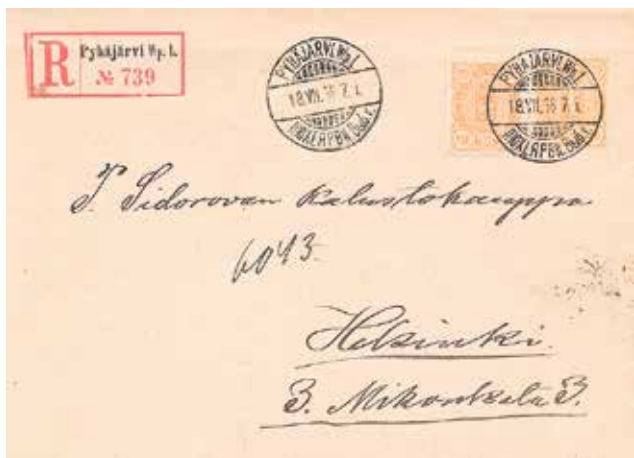 R Pyhäjärvi Wp. l.
№ 739
PYHÄJÄRVI Wp.l.
18.VII.16 7 i.
PYHÄJÄRVI Wp.l.
18.VII.16 7 i.
Sidorovan Kalustokauppa
6043.
Helsinki.
3. Mikonkatu 3.